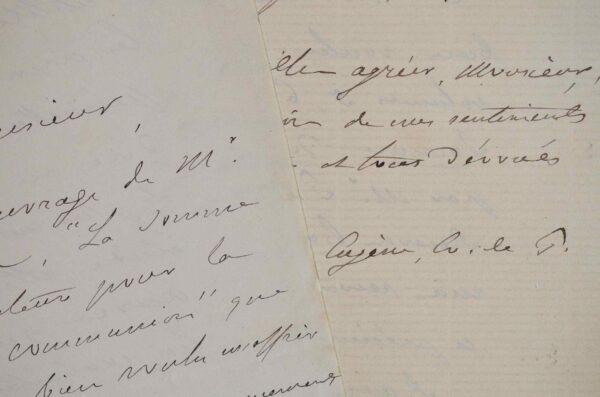 onsieur,
ouvrage de Mr.
"La Somme
pour la
communion" que
bien voulu m'offrir
agréer, Monsieur,
de mes sentiments
et tous dévoués
Eugène, Ev. de